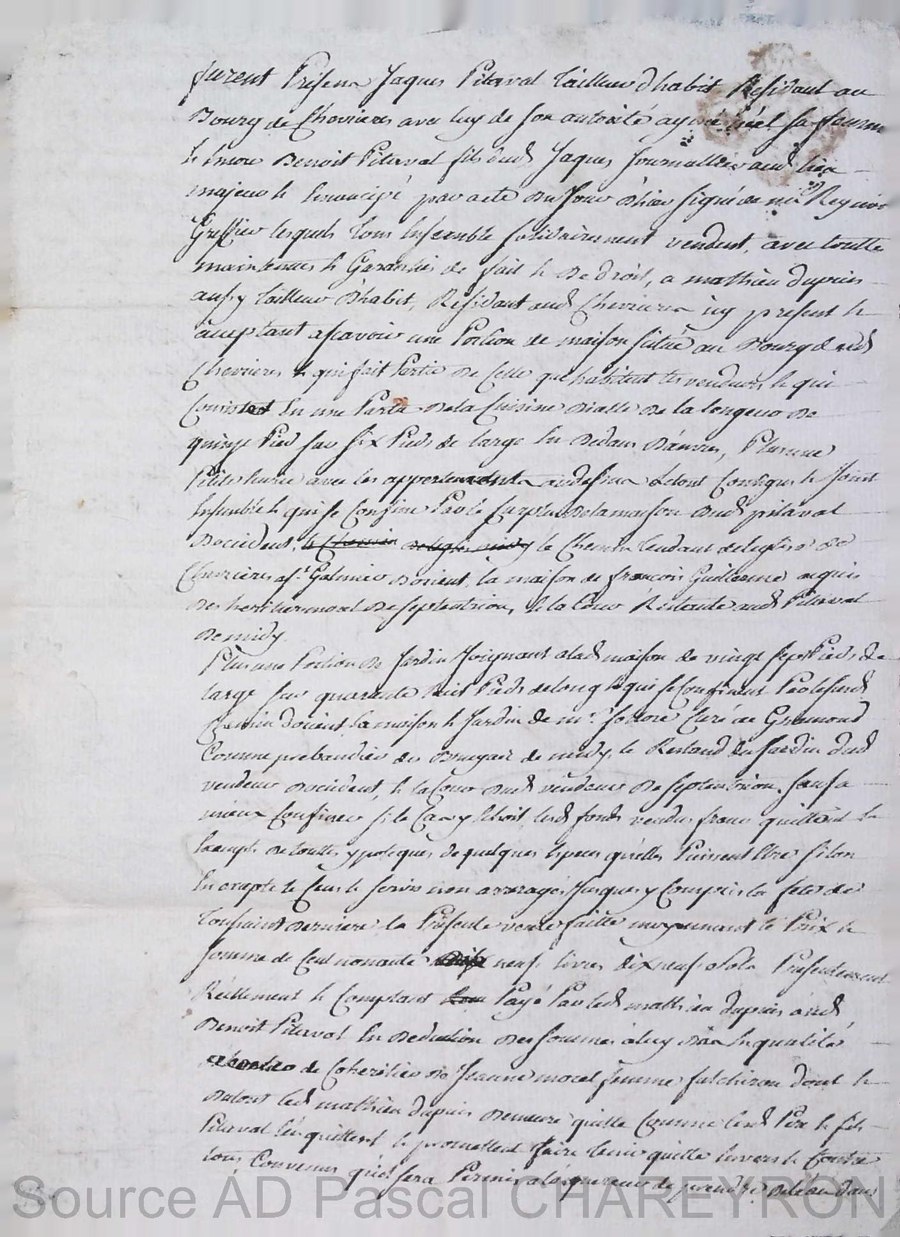 furent Présens Jaques Pitaval tailleur d'habit Résidant au
Bourg de Chevrieres avec luy de son autorité
Benoit Pitaval fils dud Jaques Journallier aud lieu
majeur et émancipé par acte du Jour d'hier signé de me
Greffier lesquels tous ensemble solidairement vendent, avec toutte
maintenues et Garanties de fait et de droit, a mathieu dupuis
aussy tailleur d'habit, Résidant aud Chevrieres icy présent et
acceptant ascavoir une Portion de maison située au Bourg dud
Chevrieres et qui fait Partie de Celle que habitent les vendeurs, et qui
Consiste En une Partie de la Cuisine de la longeur de
quinze Pied sur six Pieds de large En dedans d'œuvres, Plus une
Petite avec les appartements audessus letout Contigus et Joint
Ensemble qui se Confine Par le Corps de la maison dud pitaval
doccident, le Chemin tendant de leglise de
Chevrieres a St Galmier dorient, la maison de francois Guillerme
de septentrion, et la Cour Restante aud Pitaval
de midy
Plus une Portion de Jardin Joignant alad maison de vingt sept Pieds de
large sur quarente huit Pieds de long et qui se Confinent Par lesusd
Chemin dorient, la maison et Jardin de mr. Curé de Gramond
Comme prebandier des de midy, le Restand du Jardin dud
vendeur doccident, et la Cour dud vendeur de septentrion, sauf a
mieux Confiner si le Cas y Echoit, lesd fonds vendus franc quitte et
Exempts de touttes ypoteques de quelques Especes quelles Puissent Etre si lon
En excepte le Cens et servis non arreragés Jusques y Compris la fete de
toussaint derniere la Présente vente faitte moyennant le Prix et
somme de Cent nonante neuf livres dix neuf sols Présentement
Réellement et Comptant Payé Par led mathieu dupuis aud
Benoit Pitaval En deduction des sommes a luy En qualité
de Coheritier de Jeanne morel femme fulchiron dont et
dutout led mathieu dupuis demeure quitte Comme lesd Pere et fils
Pitaval Len quittent et promettent faire tenir quitte Envers et Contre
tous, Convenus quil sera Permis alaquereur de prendre de leau dans
Source AD Pascal CHAREYRON